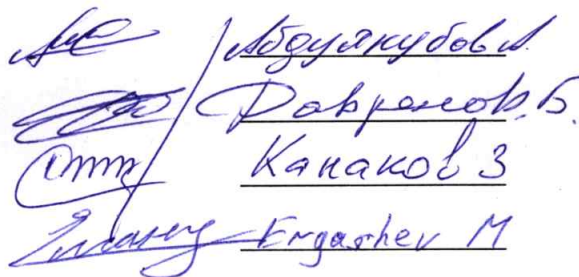 Абдуякубов А.
Давронов.Б.
Канаков З
Ergashev M